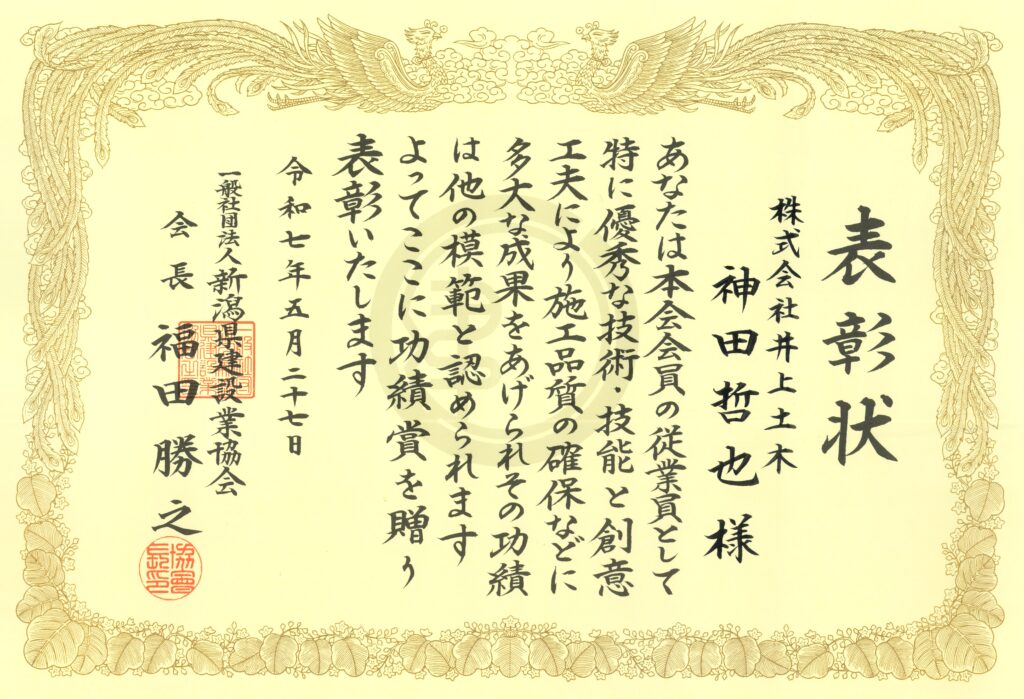 表彰状
株式会社井上土木
神田哲也様
あなたは本会会員の従業員として
特に優秀な技術・技能と創意
工夫により施工品質の確保などに
多大な成果をあげられその功績
は他の模範と認められます
よってここに功績賞を贈り
表彰いたします
令和七年五月二十七日
一般社団法人新潟県建設業協会
会長福田勝之